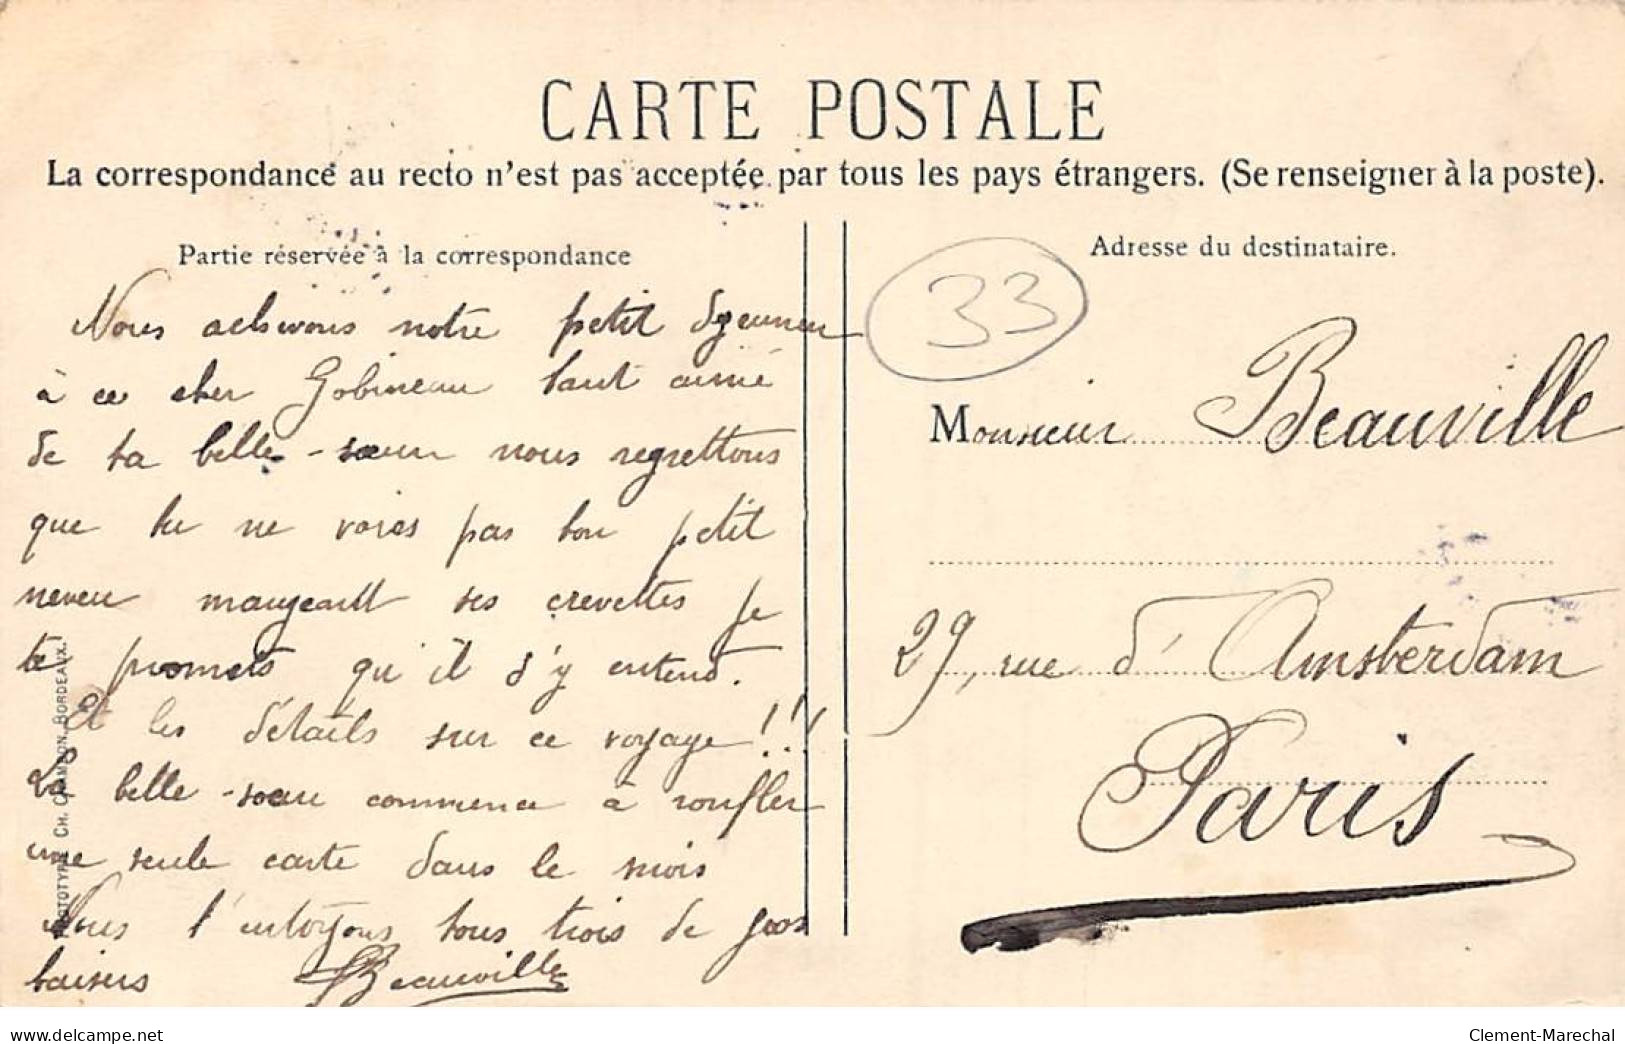 CARTE POSTALE
La correspondance au recto n'est pas acceptée par tous les pays étrangers. (Se renseigner à la poste).
Partie réservée à la correspondance
Nous achevons notre petit dejeuner
à ce cher Gobineau tant aimé
de ta belle-soeur nous regrettons
que tu ne voies pas ton petit
neveu mangeant ses crevettes je
te promets qu'il s'y entend.
Et les détails sur ce voyage!!!
La belle-soeur commence à ronfler
une seule carte dans le mois
Nous t'envoyons tous trois de gros
baisers Beauville
PHOTOTYPIE CH. CHAMBON, BORDEAUX.
Adresse du destinataire.
33
Monsieur Beauville
29, rue d'Amsterdam
Paris
www.delcampe.net
Clement-Marechal